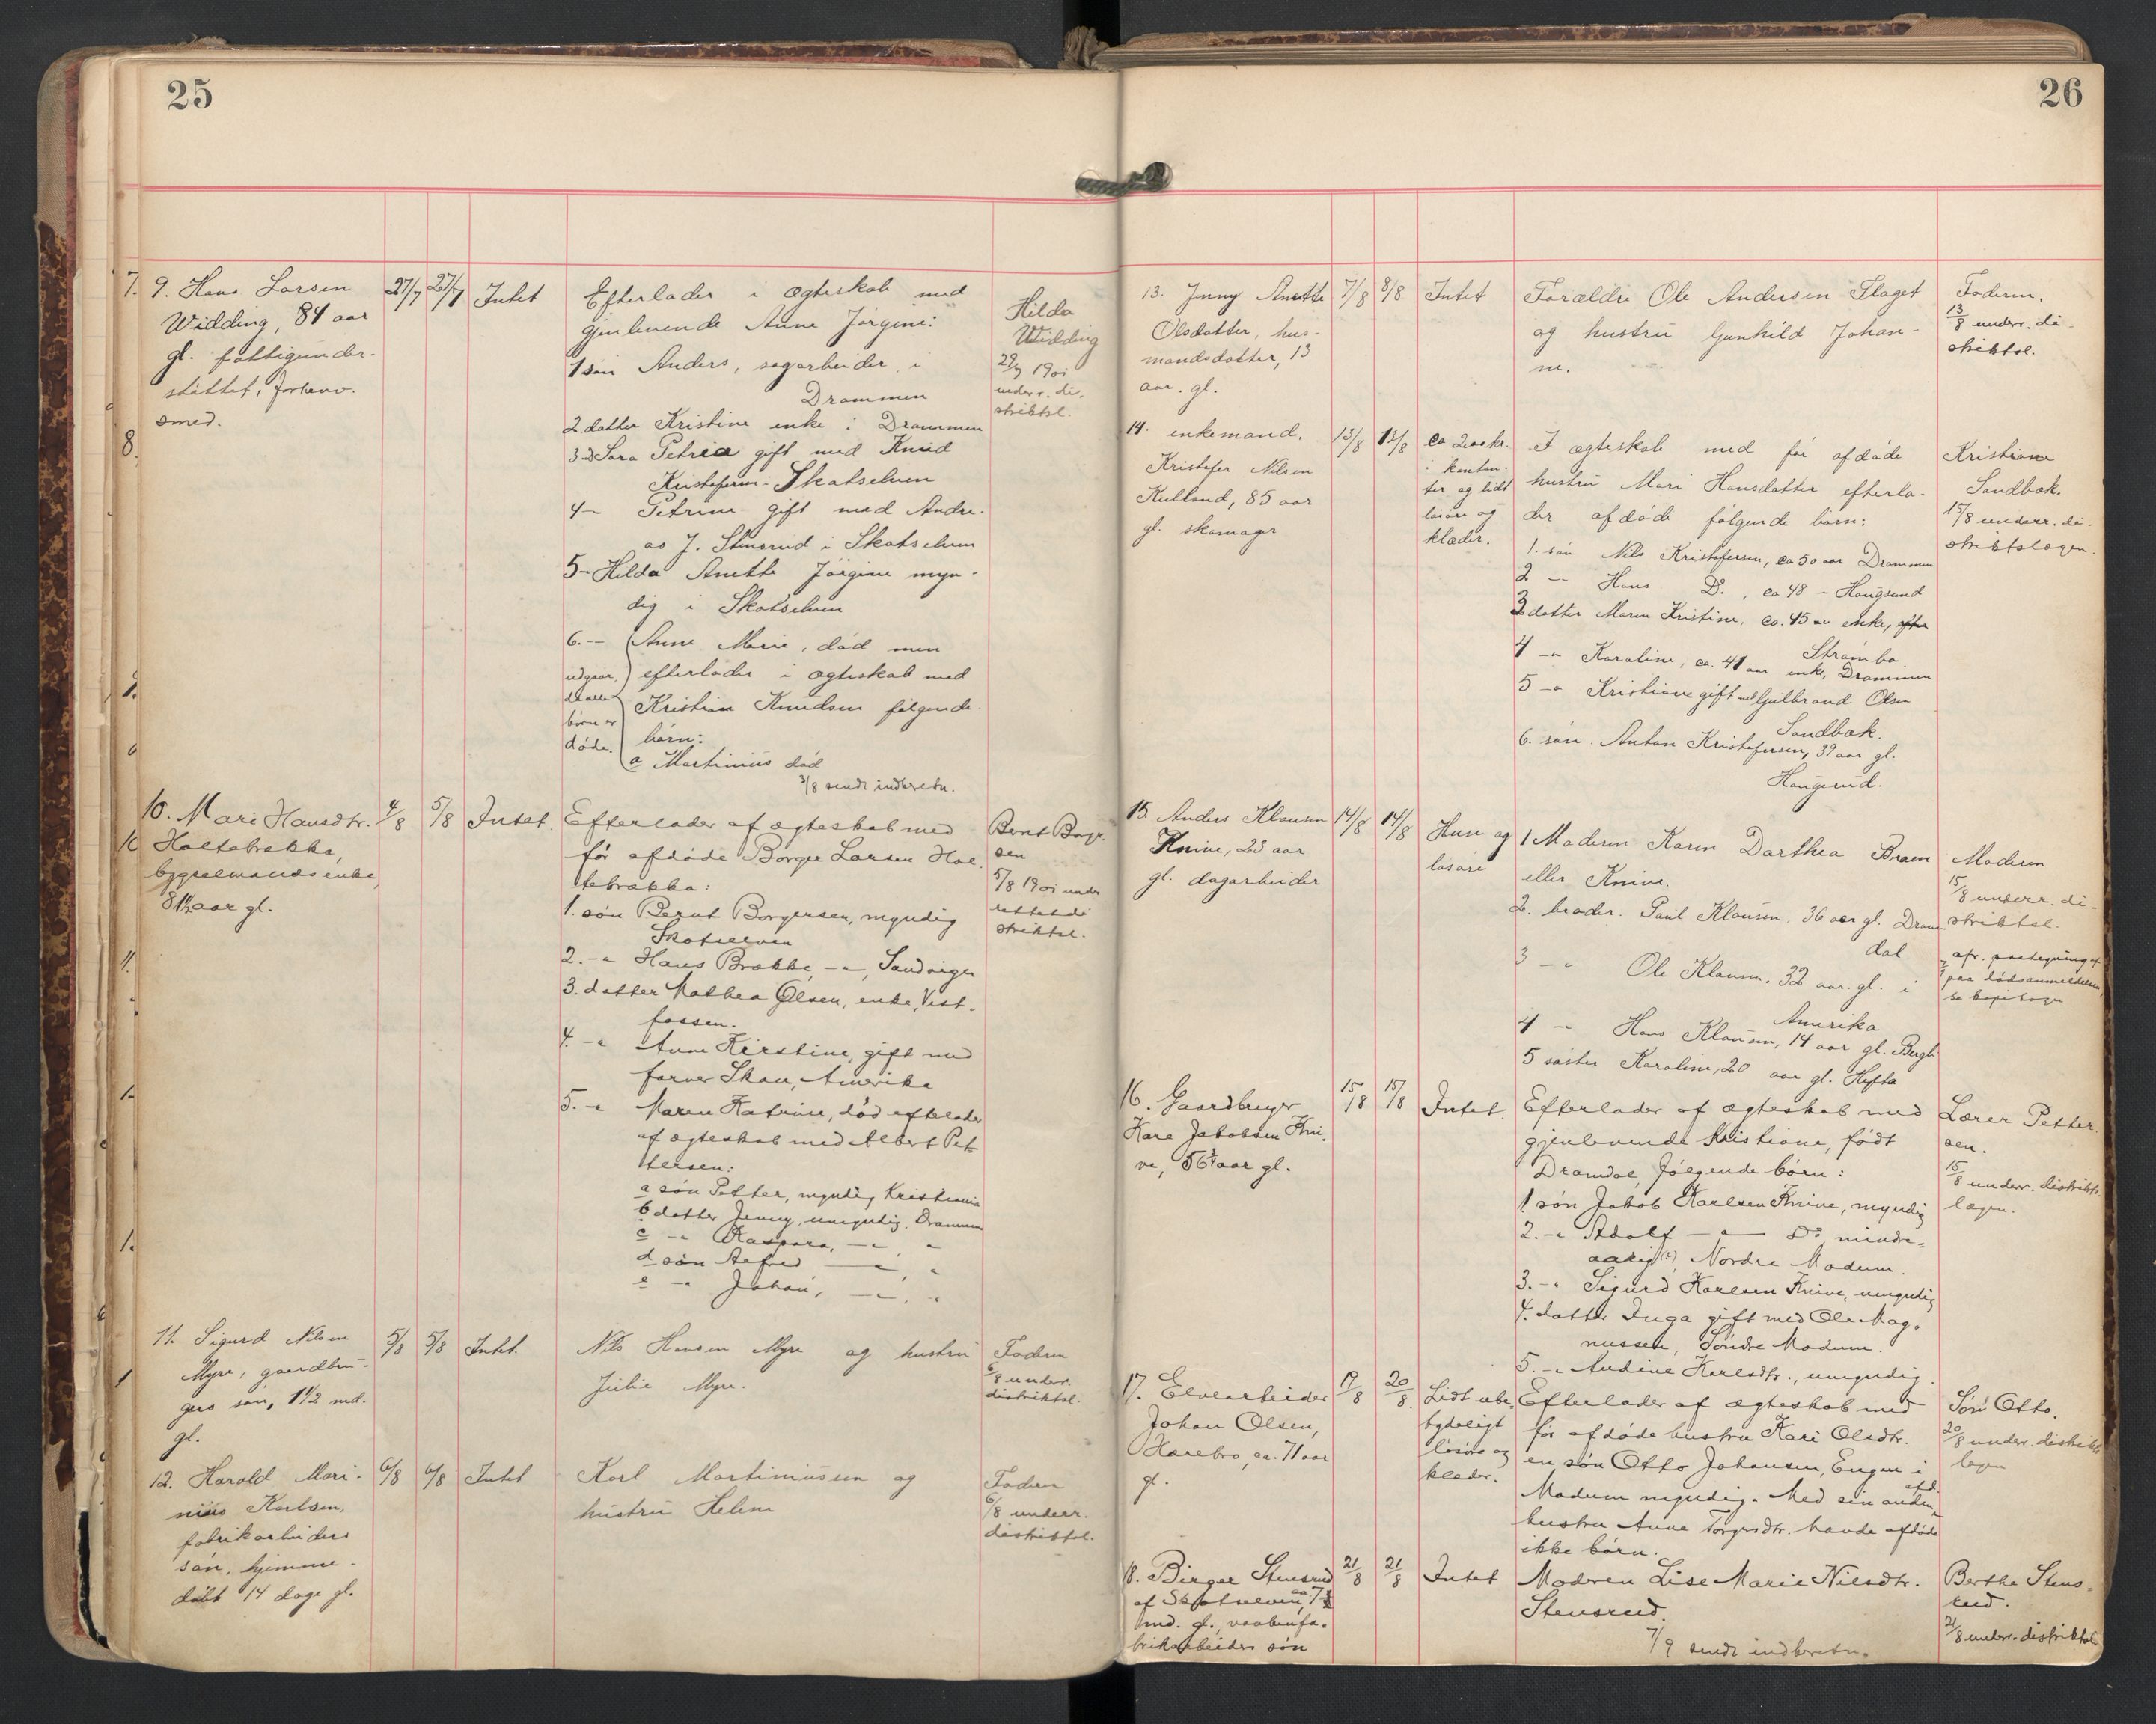 25
9. Hans Larsen
Widding, 84 aar
gl. fattigunder-
støttet, forhenv.
smed.
27/7
27/7
Intet
Efterlader i ægteskab med
gjenlevende Anne Jørgine:
1 søn Anders, sagarbeider i
Drammen
2 datter Kristine enke i Drammen
3 D Sara Petria gift med Knud
Kristofersen - Skotselven
4 — Petrine gift med Andre-
as J. Stensrud i Skotselven
5 — Hilda Anette Jørgine myn-
dig i Skotselven
6. — Anne Marie, død men
efterlader i ægteskab med
Kristian Knudsen følgende
børn:
a Martinius død
udgaar,
da alle
børn er
døde.
3/8 sendt indberetn.
Hilda
Widding
29/7 1901
underr. di-
striktsl.
10. Mari Hansdtr.
Holtebrække,
bygselmands enke,
81 1/2 aar gl.
4/8
5/8
Intet.
Efterlader af ægteskab med
før afdøde Borger Larsen Hol-
tebrække:
1. søn Bernt Borgersen, myndig
Skotselven
2. -"- Hans Brække, -"-, Sandviger
3. datter Mathea Olsen, enke, Vest-
fossen.
4. -"- Anne Kirstine, gift med
farver Skau, Amerika
5. -"- Maren Katrine, død efterlader
af ægteskab med Albert Pet-
tersen:
a søn Petter, myndig Kristiania
b datter Jenny, umyndig, Drammen
c -"- Kaspara, -"-, "
d søn Alfred -"-, "
e -"- Johan, -"-, "
Bernt Borger-
sen
5/8 1901 under
rettet di
striktsl.
11. Sigurd Nilsen
Myre, gaardbru-
gers søn, 1 1/2 md.
gl.
5/8
5/8
Intet.
Nils Hansen Myre og hustru
Julie Myre.
Faderen
6/8 underr.
distriktsl.
12. Harald Mari-
nius Karlsen,
fabrikarbeiders
søn, hjemme-
døbt 14 dage gl.
6/8
6/8
Intet
Karl Martiniusen og
hustru Helene
Faderen
6/8 underr.
distriktsl.
26
13. Jenny Anette
Olsdatter, hus-
mandsdatter, 13
aar. gl.
7/8
8/8
Intet
Forældre Ole Andersen Flaget
og hustru Gunhild Johan-
ne.
Faderen.
13/8 underr. di-
striktsl.
14. enkemand.
Kristofer Nilsen
Kulland, 85 aar
gl. skomager
13/8
13/8
ca 200 kr.
i kontan-
ter og lidt
løsøre og
klæder.
I ægteskab med før afdøde
hustru Mari Hansdatter efterla-
der afdøde følgende børn:
1. søn Nils Kristofersen, ca 50 aar Drammen
2 — Hans Do., ca 48 - Haugsund
3 datter Maren Kristine, ca. 45 aar enke,
Strømbo.
4 -"- Karoline, ca. 41 aar enke, Drammen
5 -"- Kristiane gift med Gulbrand Olsen
Sandbæk.
6. søn. Anton Kristofersen, 39 aar gl.
Haugerud.
Kristiane
Sandbæk.
15/8 underr. di-
striktslægen.
15. Anders Klausen
Knive, 23 aar
gl. dagarbeider
14/8
14/8
Huse og
løsøre
1 Moderen Karen Dorthea Bræen
eller Knive.
2. broder. Paul Klausen, 36 aar gl. Dram-
dal
3 -"- Ole Klausen, 32 aar. gl. i
Amerika
4 -"- Hans Klausen, 14 aar gl. Bergli
5 søster Karoline, 20 aar gl. Hefte
Moderen
15/8 underr. di-
striktsl.
afr. paategning
paa dødsanmeldelsen,
se kopibogen
16. Gaardbruger
Karl Jakobsen Kni-
ve, 56 1/2 aar gl.
15/8
15/8
Intet.
Efterlader af ægteskab med
gjenlevende Kristiane, født
Dramdal, følgende børn:
1 søn Jakob Karlsen Knive, myndig
2. -"- Adolf -"- Do, mindre-
aarig (?) Nordre Modum.
3. -"- Sigurd Karlsen Knive, umyndig
4. datter Inga gift med Ole Mag-
nussen, Søndre Modum.
5. -"- Andine Karlsdtr., umyndig.
Lærer Petter-
sen.
15/8 underr. distrikts-
lægen.
17. Elvearbeider
Johan Olsen,
Horebro, ca. 71 aar
gl.
19/8
20/8.
Lidt ube-
tydeligt
løsøre og
klæder.
Efterlader af ægteskab med
før afdøde hustru Kari Olsdtr.
en søn Otto Johansen, Engen i
Modum myndig. Med sin anden afd.
hustru Anne Torgersdtr. havde afdøde
ikke børn.
Søn Otto.
20/8 underr. distrikts
lægen
18. Birger Stensrud
af Skotselven, ca 7 1/2
md. gl., vaabenfa-
brikarbeiders søn
21/8
21/8
Intet
Moderen Lise Marie Nilsdtr.
Stensrud.
7/9 sendt indberetn.
Berthe Stens-
rud.
21/8 underr. distriktsl.